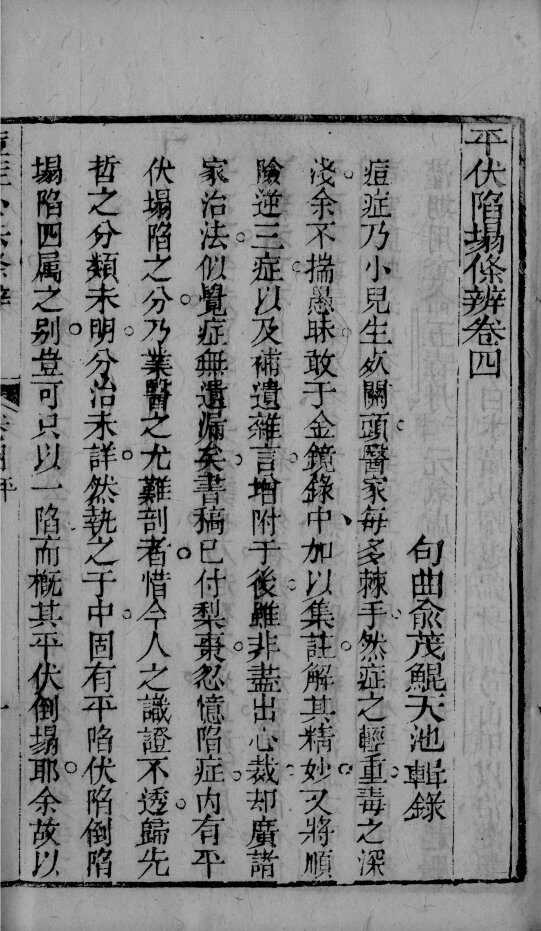 平伏陷塌條辨卷四
句曲俞茂鯤天池輯錄
痘症乃小兒生死關頭醫家每多棘手然症之輕重毒之深
淺余不揣愚昧敢于金鏡錄中加以集註解其精妙又將順
險逆三症以及補遺雜言增附于後雖非盡出心裁却廣諸
家治法似覺症無遺漏矣書稿已付梨棗忽憶陷症內有平
伏塌陷之分乃業醫之尤難剖者惜今人之識證不透歸先
哲之分類未明分治未詳然執之于中固有平陷伏陷倒陷
塌陷四属之别豈可只以一陷而概其平伏倒塌耶余故以